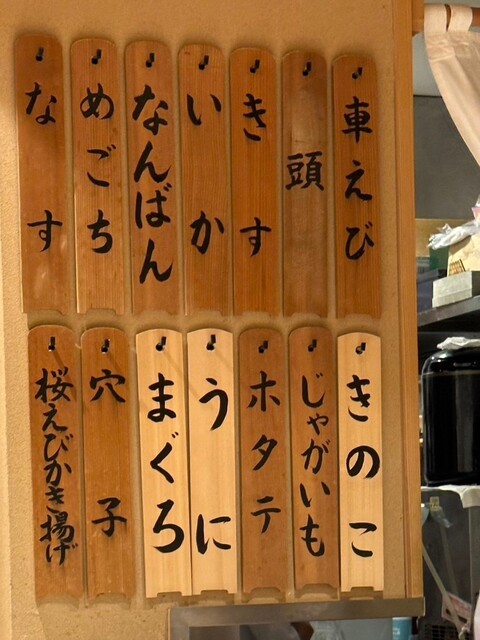 車えび
頭
きす
いか
なんばん
めごち
なす
きのこ
じゃがいも
ホタテ
うに
まぐろ
穴子
桜えびかき揚げ